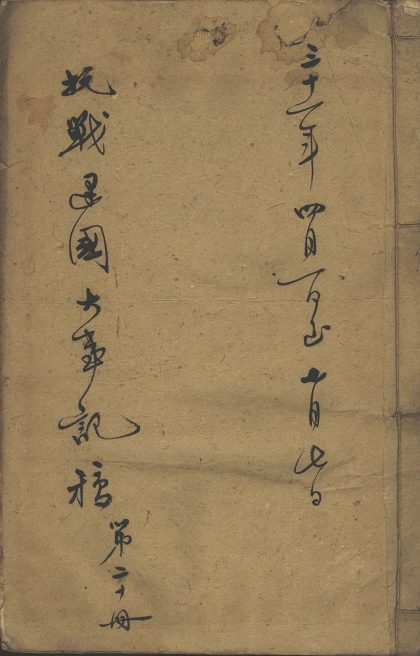 三十一年四月一日至七月七日
抗戰建國大事記稿
第二十冊